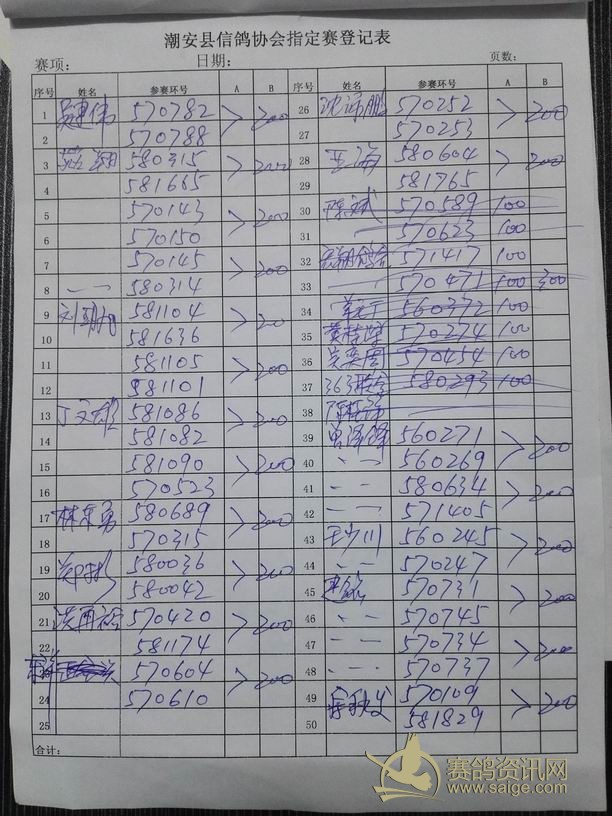 潮安县信鸽协会指定赛登记表
赛项: 日期: 页数:
序号 姓名 参赛环号 A B 序号 姓名 参赛环号 A B
1 570782 > 200 26 沈沛鹏 570252 > 200
2 570788 27 570253
3 580315 > 2000 28 王海 580604 > 200
4 581665 29 581765
5 570143 > 200 30 陈斌 570589 100
6 570150 31 570623 100
7 570145 > 200 32 571417 100
8 一一 580314 33 570471 100 300
9 581104 > 200 34 560372 100
10 581636 35 黄桂峰 570274 100
11 581105 > 200 36 570454 100
12 581101 37 363联合 580293 100
13 丁文雄 581086 > 200 38
14 581082 39 560271 > 200
15 581090 > 200 40 一一 560269
16 570523 41 一一 580634 > 200
17 林东勇 580689 > 200 42 一一 571405
18 570315 43 王少川 560245 > 200
19 580036 > 200 44 一一 570247
20 580042 45 570731 > 200
21 570420 > 200 46 一一 570745
22 581174 47 一一 570734 > 200
23 570604 > 200 48 一一 570737
24 570610 49 570109 > 200
25 50 581829
合计:
赛鸽资讯网
www.saige.com